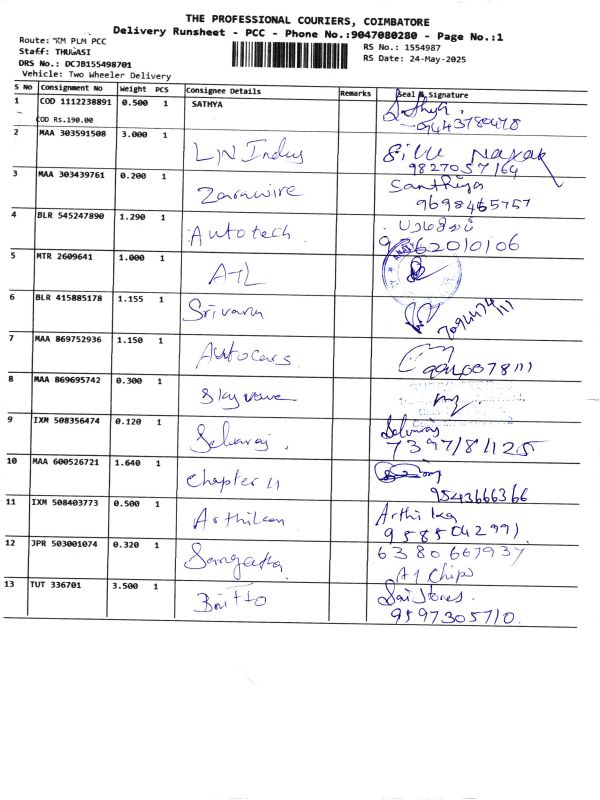 THE PROFESSIONAL COURIERS, COIMBATORE
Delivery Runsheet - PCC - Phone No.:9047080280 - Page No.:1
Route: KM PLM PCC
RS No.: 1554987
Staff: THULASI
RS Date: 24-May-2025
DRS No.: DCJB155498701
Vehicle: Two Wheeler Delivery
S No Consignment No Weight PCS Consignee Details Remarks Seal & Signature
1 COD 1112238891 0.500 1 SATHYA Sathya.
COD Rs.190.00 9443780478
2 MAA 303591508 3.000 1 LN Indus
9827057164
3 MAA 303439761 0.200 1 Zarawire Santhiya
9698465757
4 BLR 545247890 1.290 1 Autotech
5 MTR 2609641 1.000 1 ATL
6 BLR 415885178 1.155 1 Srivaru
7 MAA 869752936 1.150 1 Autocars
8 MAA 869695742 0.300 1
9 IXM 508356474 0.120 1 Selvaraj. Selvaraj
7397181125
10 MAA 600526721 1.640 1 Chapter 11
9543666366
11 IXM 508403773 0.500 1
9585042991
12 JPR 503001074 0.320 1 6380667937
A1 Chips
13 TUT 336701 3.500 1 Britto Sai Stores.
9597305710.